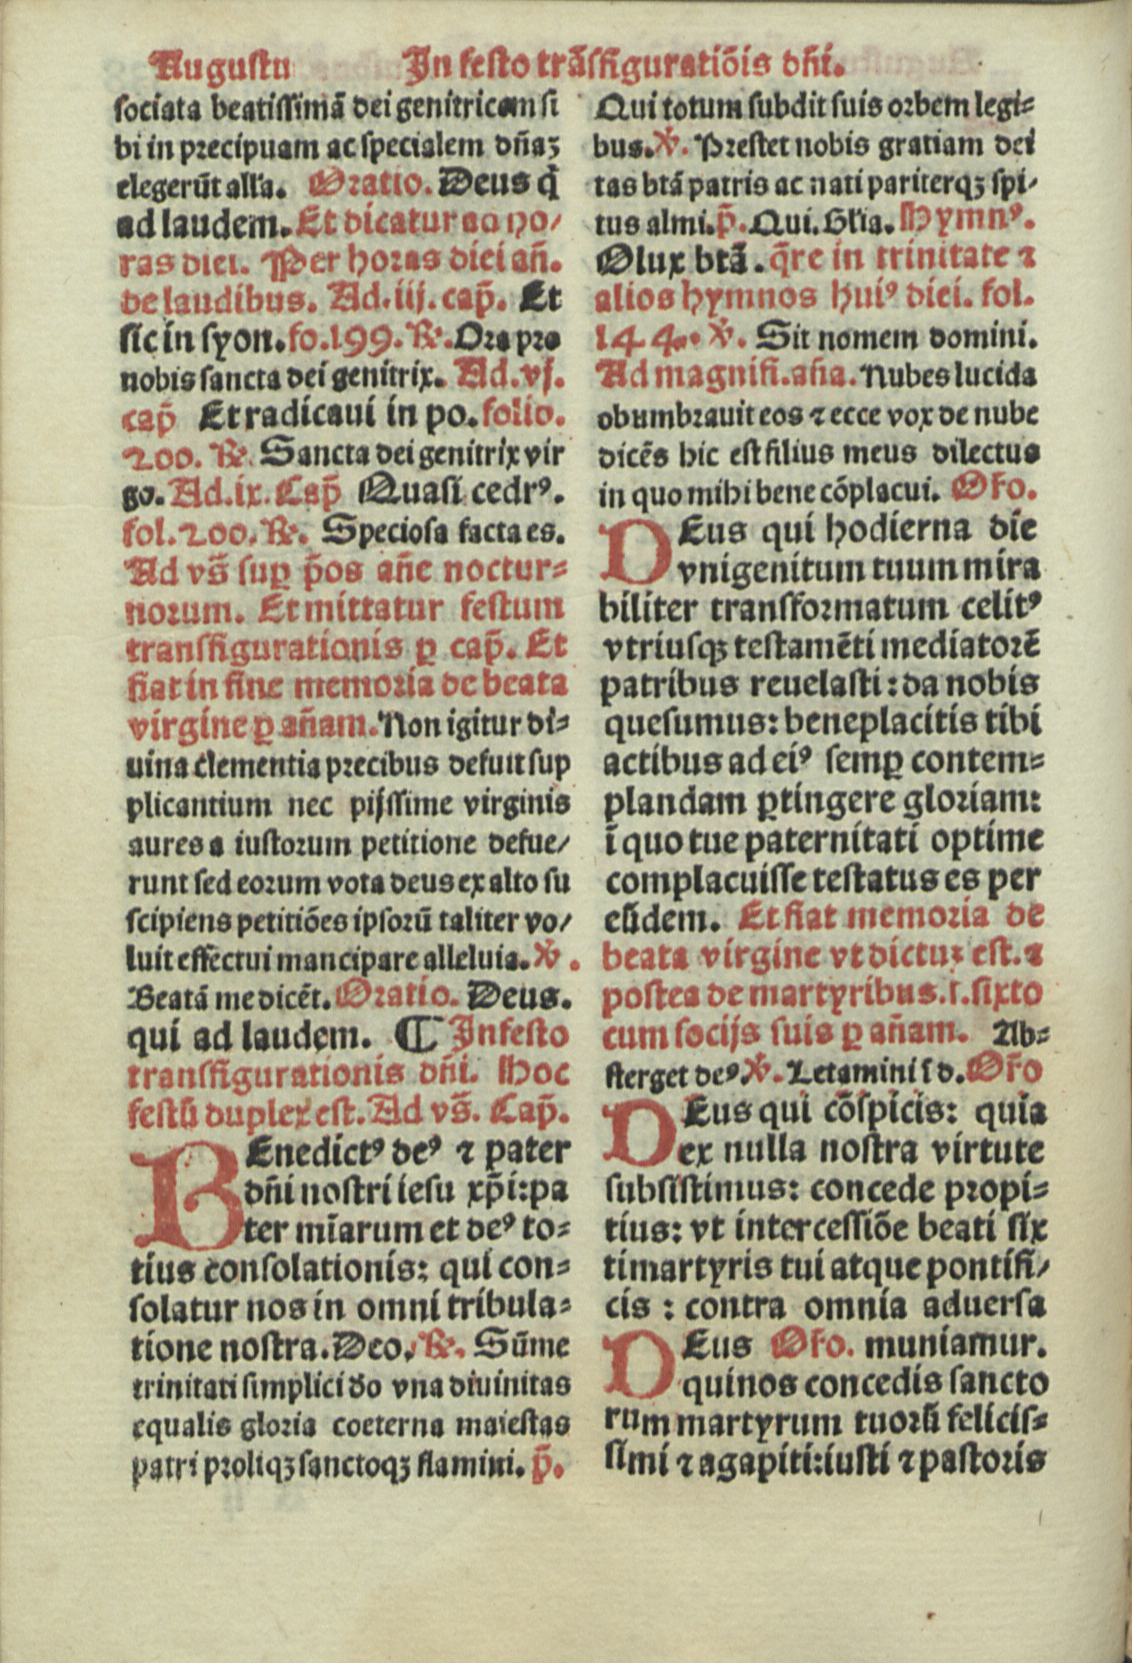 Augustu In festo trãsfiguratiõis dñi.
sociata beatissimã dei genitricem si
bi in precipuam ac specialem dñaʒ
elegerũt all'a. Oratio. Deus q̃
ad laudem. Et dicatur ad ho/
ras diei. Per horas diei añ.
de laudibus. Ad .iij. cap̃. Et
sic in syon. fo. 199. ℟. Ora pro
nobis sancta dei genitrix. Ad .vj.
cap̃ Et radicaui in po. folio.
200. ℟. Sancta dei genitrix vir
go. Ad .ix. Cap̃ Quasi cedrꝰ.
fol. 200. ℟. Speciosa facta es.
Ad vs̃ suꝑ p̃os añe noctur=
norum. Et mittatur festum
transfigurationis ꝑ cap̃. Et
fiat in fine memoria de beata
virgine ꝑ añam. Non igitur di=
uina clementia precibus defuit sup
plicantium nec pijssime virginis
aures a iustorum petitione defue/
runt sed eorum vota deus ex alto su
scipiens petitiões ipsorũ taliter vo/
luit effectui mancipare alleluia. ℣.
Beatã me dicẽt. Oratio. Deus.
qui ad laudem. ¶ In festo
transfigurationis dñi. Hoc
festũ duplex est. Ad vs̃. Cap̃.
BEnedictꝰ deꝰ ⁊ pater
dñi nostri iesu xp̃i: pa
ter mĩarum et deꝰ to=
tius consolationis: qui con=
solatur nos in omni tribula=
tione nostra. Deo. ℟. Sũme
trinitati simplici do vna diuinitas
equalis gloria coeterna maiestas
patri proliqʒ sanctoqʒ flamini. p̃.
Qui totum subdit suis orbem legi=
bus. ℣. Prestet nobis gratiam dei
tas btã patris ac nati pariterqʒ spi/
tus almi. p̃. Qui. Glia. Hymnꝰ.
O lux btã. q̃re in trinitate ⁊
alios hymnos huiꝰ diei. fol.
144. ℣. Sit nomem domini.
Ad magnifi. aña. Nubes lucida
obumbrauit eos ⁊ ecce vox de nube
dicẽs hic est filius meus dilectus
in quo mihi bene cõplacui. Oro.
DEus qui hodierna die
vnigenitum tuum mira
biliter transformatum celitꝰ
vtriusqʒ testamẽti mediatorẽ
patribus reuelasti: da nobis
quesumus: beneplacitis tibi
actibus ad eiꝰ semꝑ contem=
plandam ꝑtingere gloriam:
ĩ quo tue paternitati optime
complacuisse testatus es per
eũdem. Et fiat memoria de
beata virgine vt dictuʒ est. ⁊
postea de martyribus .s. sixto
cum socijs suis ꝑ añam. Ab=
sterget deꝰ. ℣. Letamini ĩ d. Oro
DEus qui cõspicis: quia
ex nulla nostra virtute
subsistimus: concede propi=
tius: vt intercessiõe beati six
ti martyris tui atque pontifi/
cis: contra omnia aduersa
DEus Oro. muniamur.
qui nos concedis sancto
rum martyrum tuorũ felicis=
simi ⁊ agapiti: iusti ⁊ pastoris